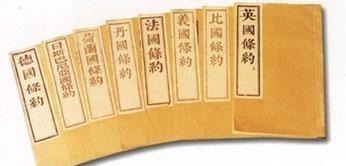 英國條約
比國條約
義國條約
法國條約
丹國條約
荷蘭國條約
日斯巴尼亞國條約
德國條約